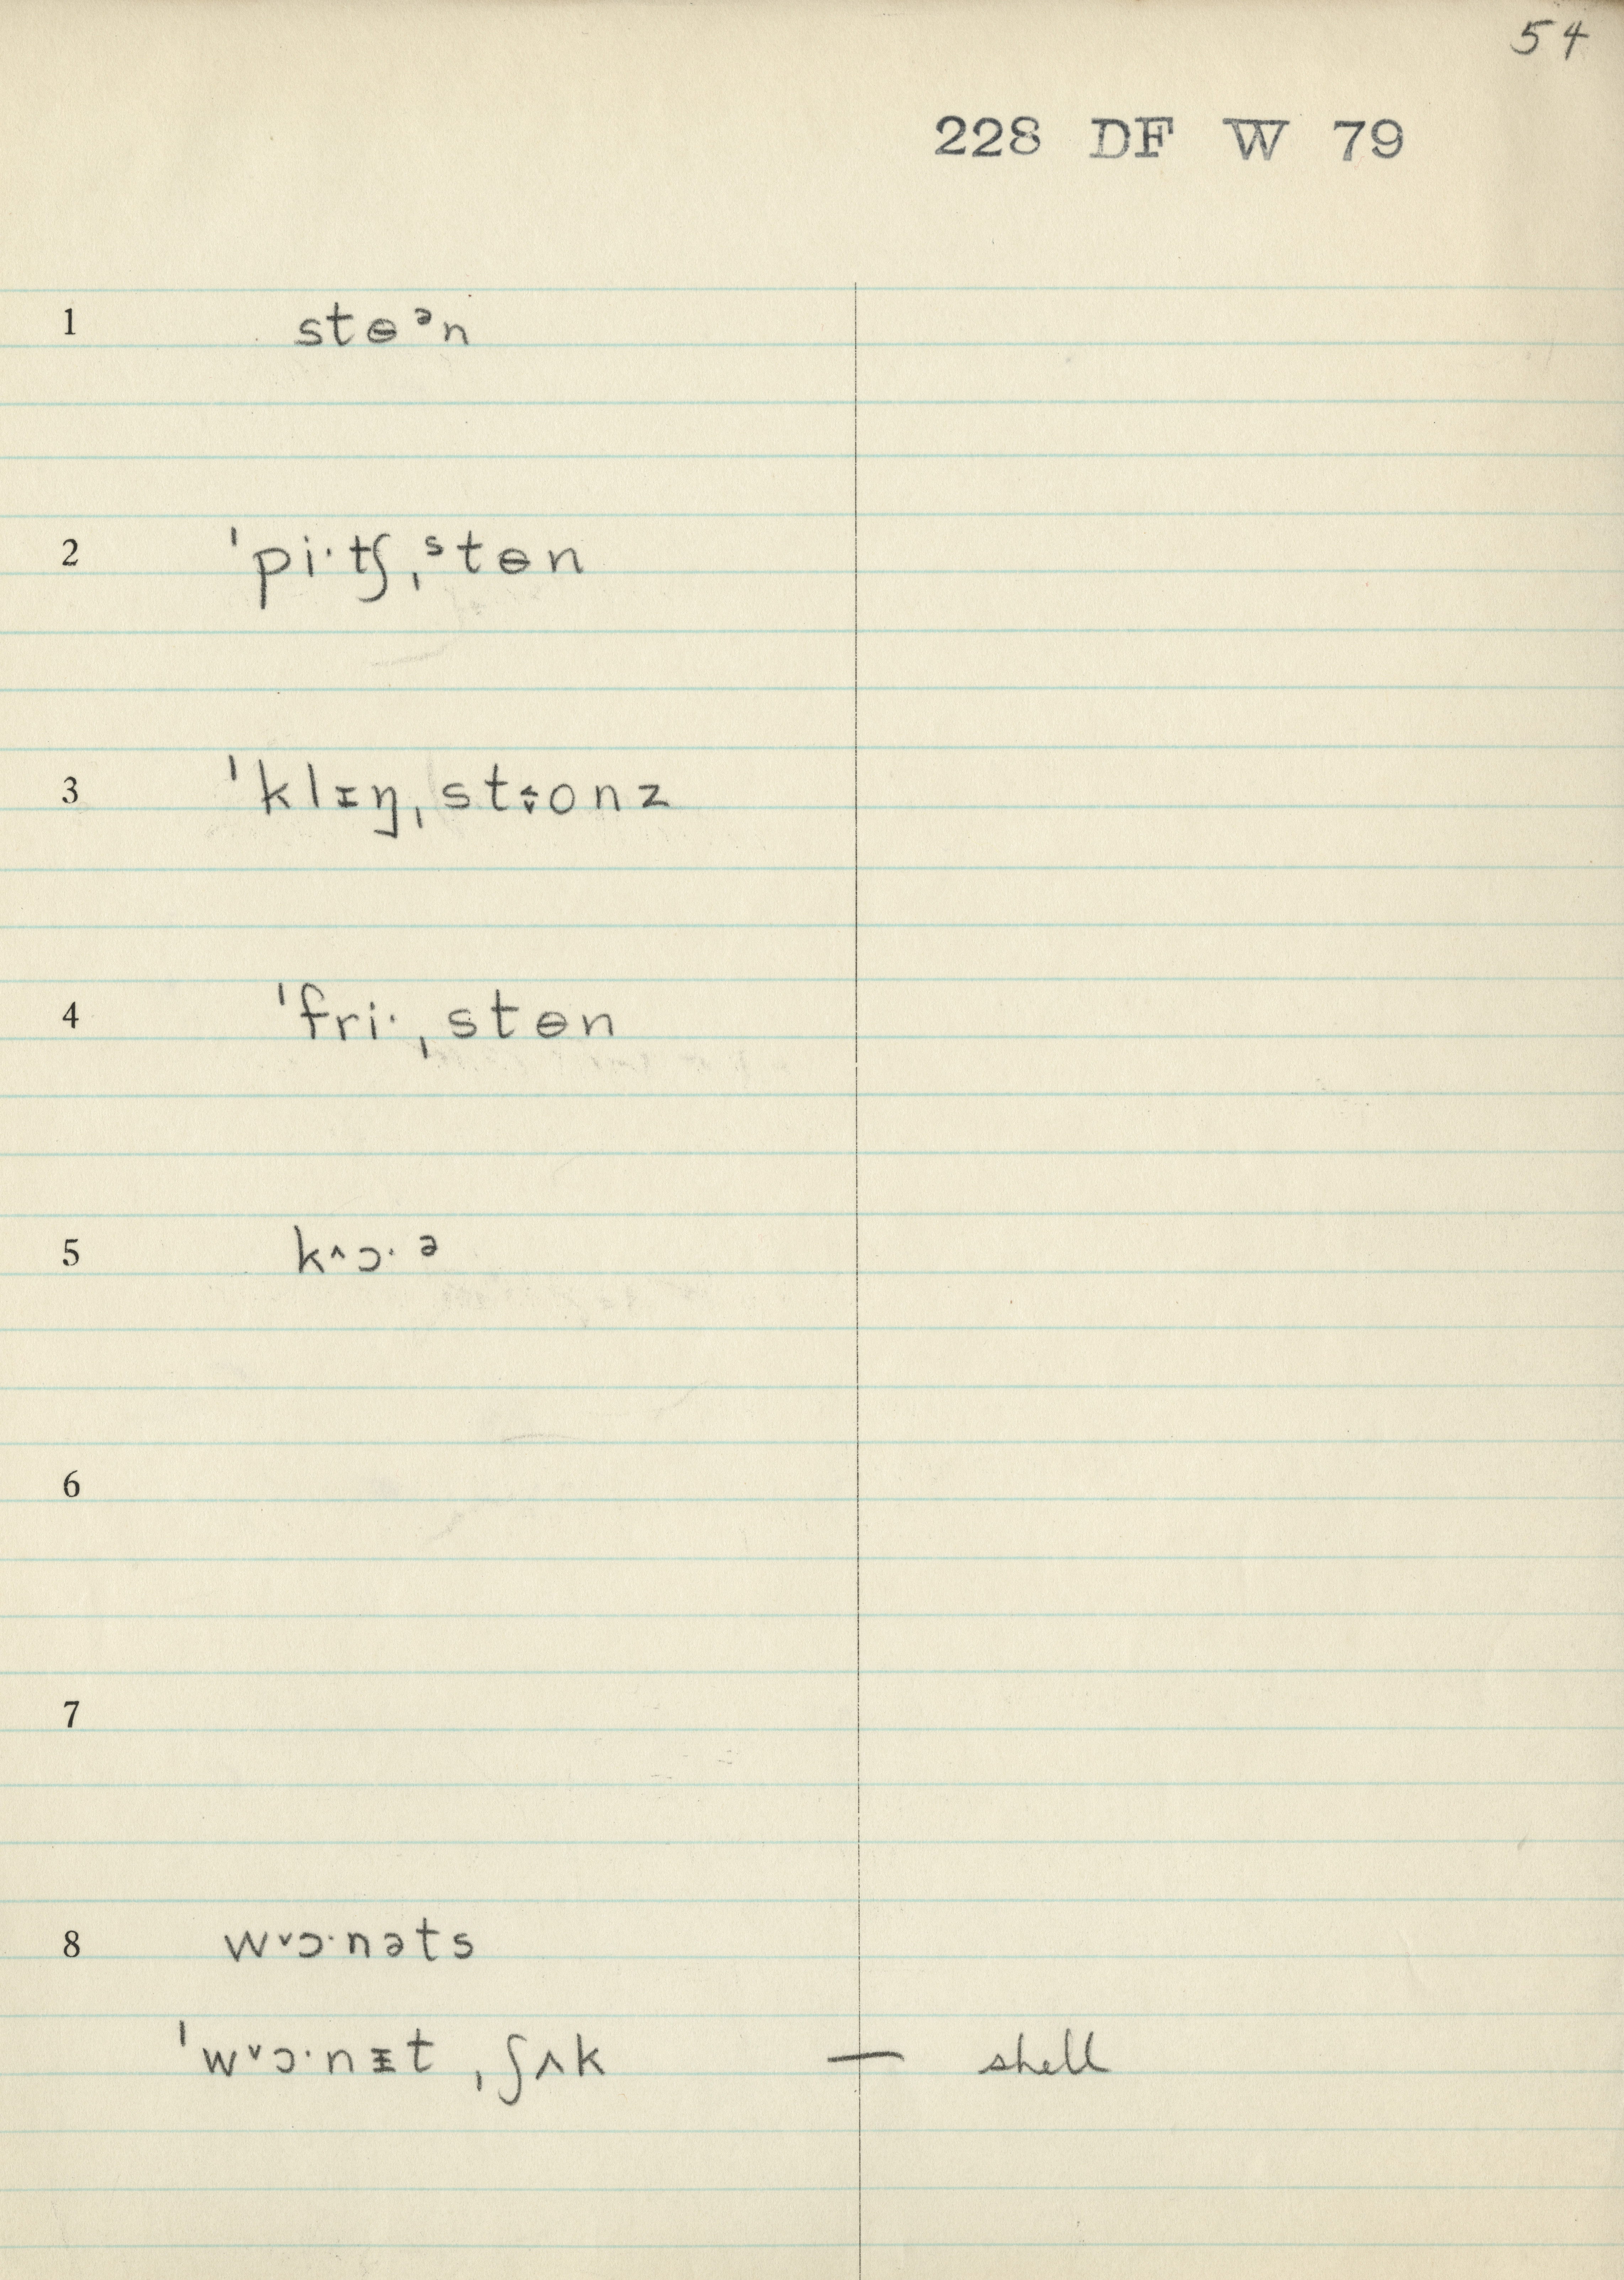 54
228 DF W 79
1 stɵᵊn
2 ˈpiˑʧˌˢtɵn
3 ˈklɪŋˌst˰ɵonz
4 ˈfriˑˌstɵn
5 k˄ɔˑᵊ
6
7
8 w˅ɔˑnəts
ˈw˅ɔˑnᵻt ˌʃʌk — shell